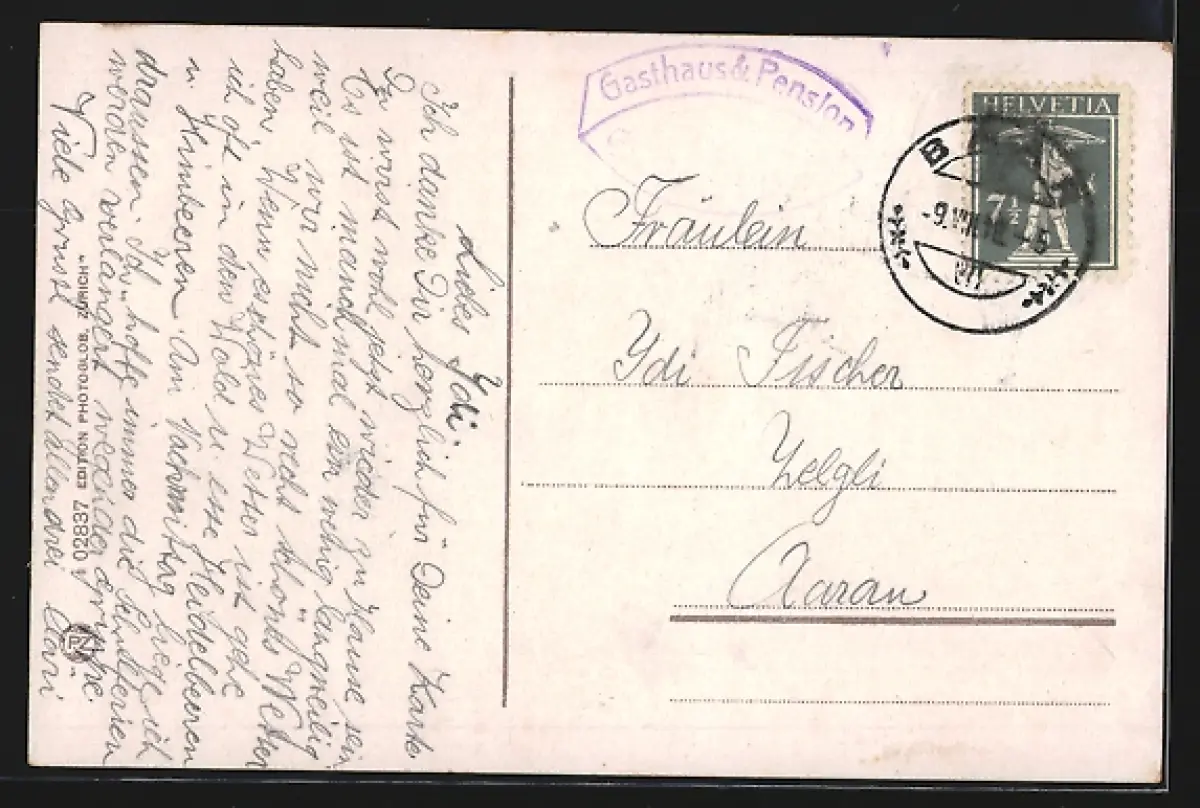 Liebes Ydi
Ich danke Dir herzlich für Deine Karte.
Du wirst wohl jetzt wieder zu Hause sein
Es ist manchmal ein wenig langweilig
weil wir nicht so recht schönes Wetter
haben. Wenn es schönes Wetter ist gehe
ich oft in den Wald u. esse Heidelbeeren
u. Himbeeren Am Nachmittag liege ich
draussen. Ich hoffe immer die Schulferien
werden verlängert wegen der Grippe.
Viele Grüsse sendet
02837 EDITION PHOTOGLOB, ZÜRICH"
Gasthaus & Pension
HELVETIA
7½
Fräulein
Ydi Fischer
Zelgli
Aarau